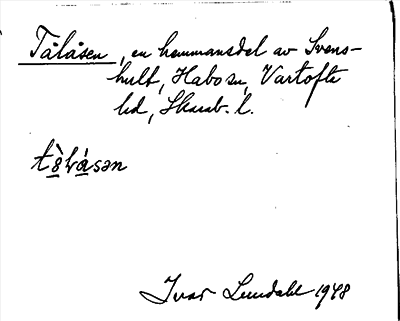 Tålåsen, en hemmansdel av Svens-
hult, Habo sn, Vartofta
hd, Skarab. l.
Ivar Lundahl 1948